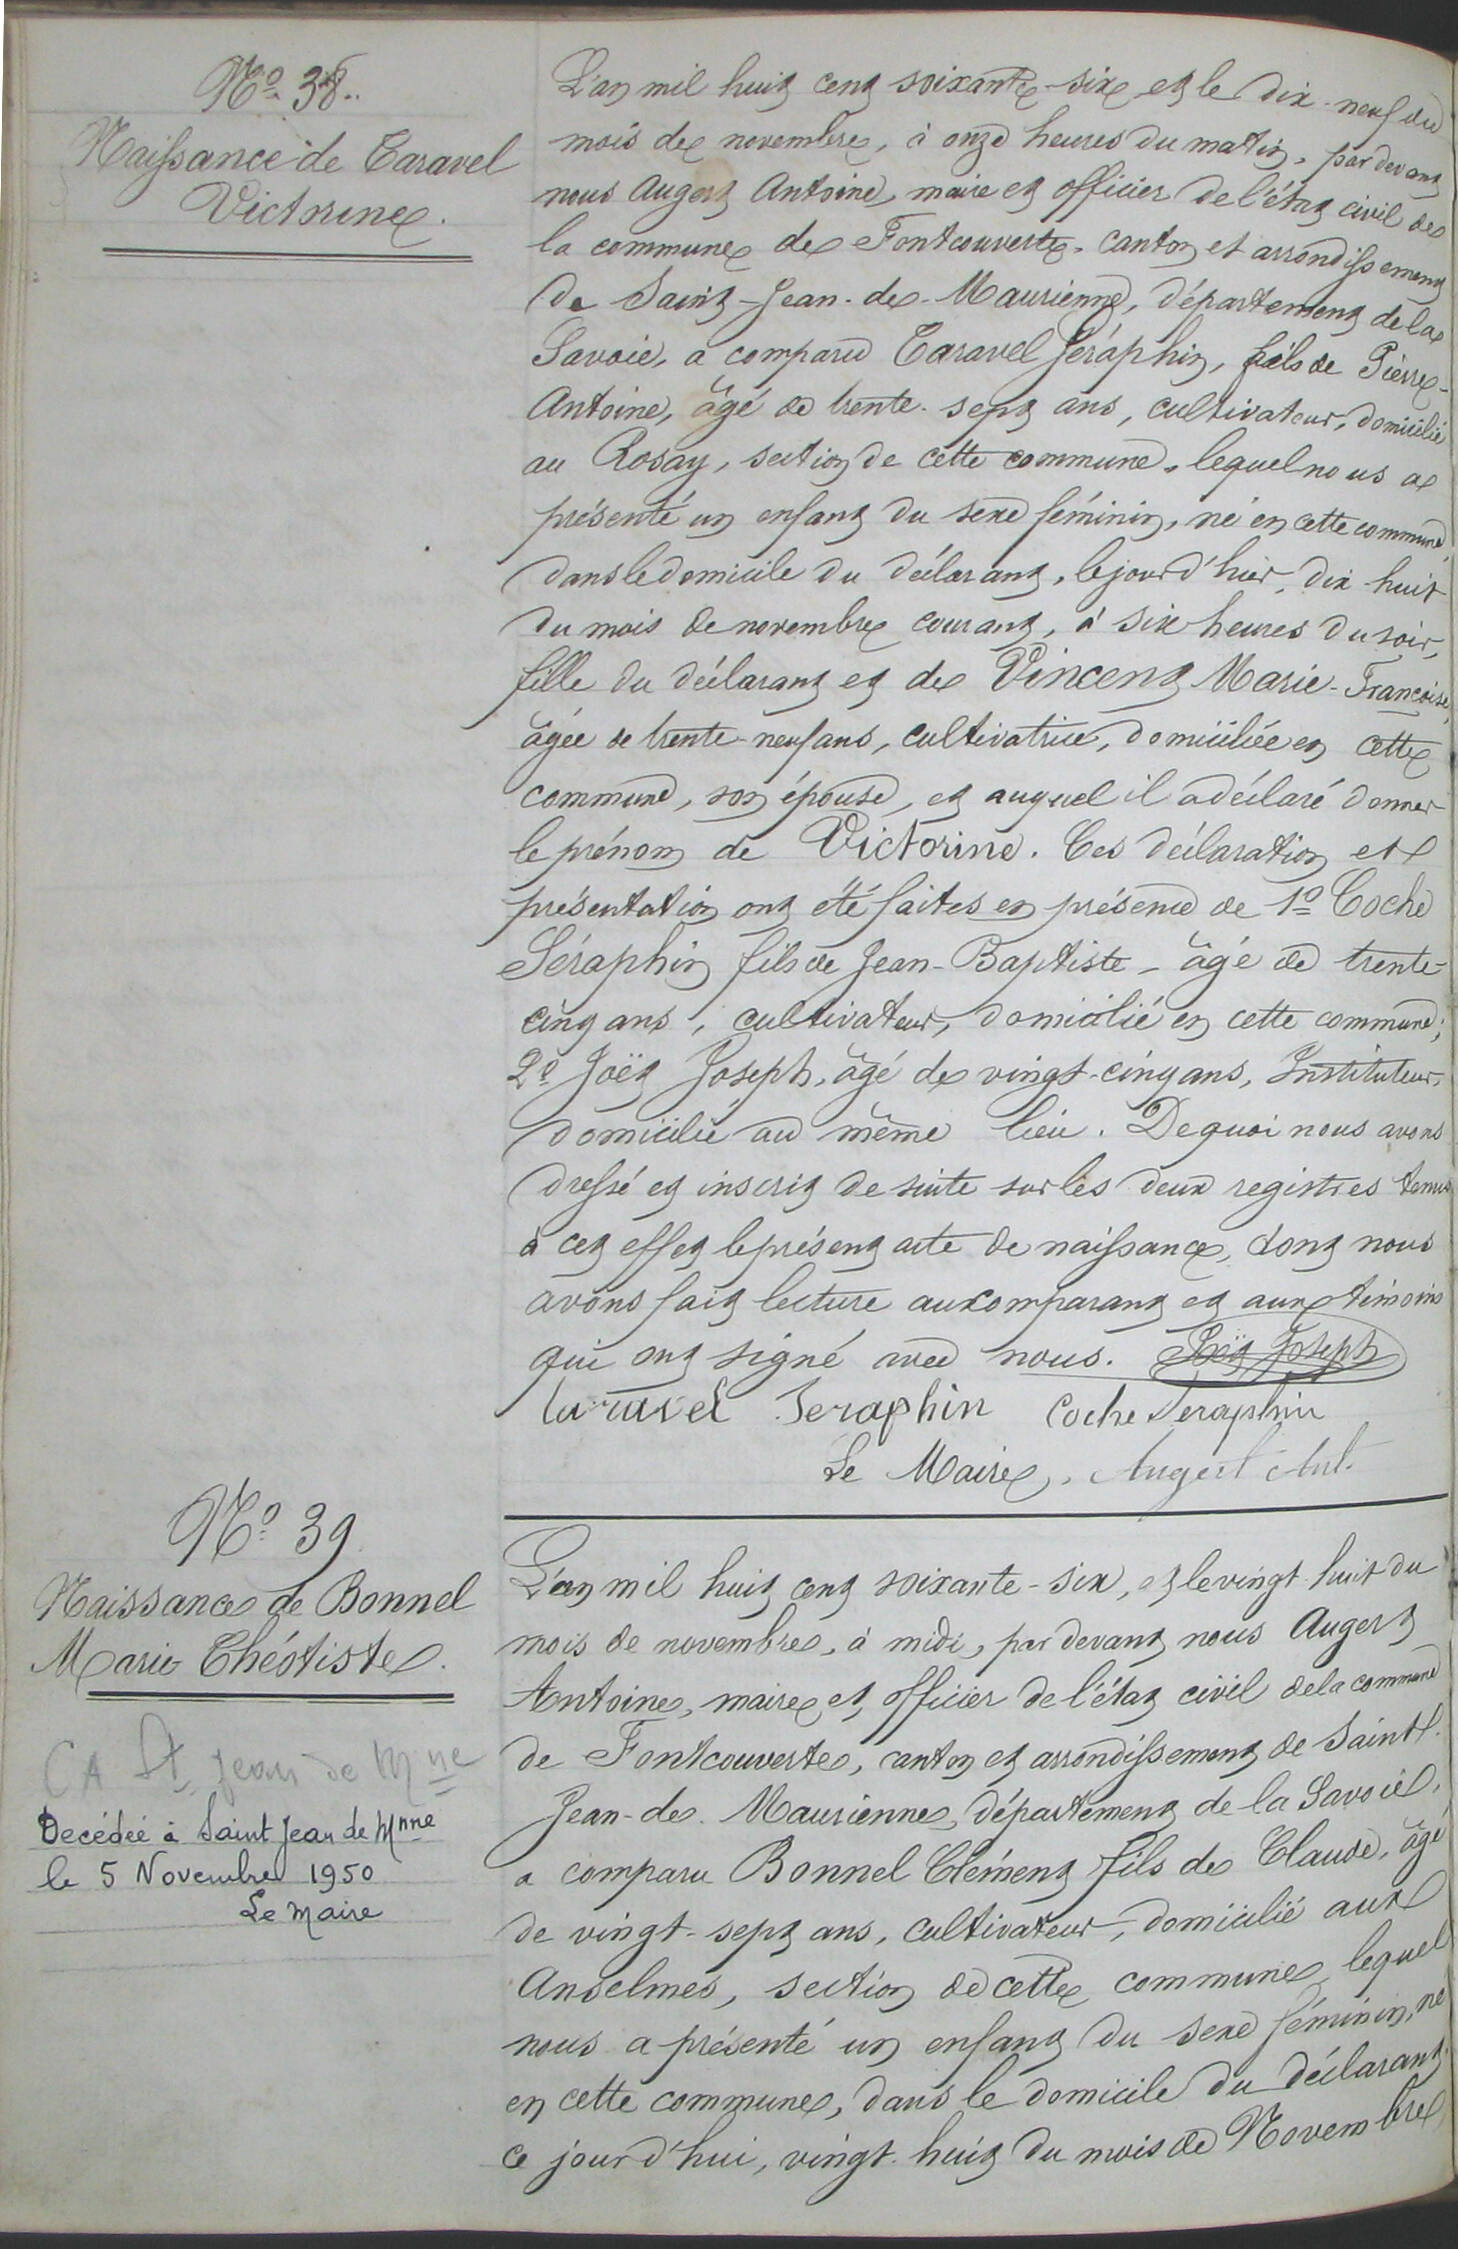 N.º 38..
Naissance de Taravel
Victorine.
L'an mil huit cent soixante-six et le dix-neuf du
mois de novembre, à onze heures du matin, par devant
nous Augert Antoine, maire et officier de l'état civil de
la commune de Fontcouverte, canton et arrondissement
de Saint-Jean-de-Maurienne, département de la
Savoie, a comparu Taravel Séraphin, fils de Pierre-
Antoine, âgé de trente-sept ans, cultivateur, domicilié
au Rosay, section de cette commune, lequel nous a
présenté un enfant du sexe féminin, né en cette commune,
dans le domicile du déclarant, le jour d'hier, dix huit
du mois de novembre courant, à six heures du soir,
fille du déclarant et de Vincent Marie-Françoise,
âgée de trente-neuf ans, cultivatrice, domiciliée en cette
commune, son épouse, et auquel il a déclaré donner
le prénom de Victorine. Ces déclaration et
présentation ont été faites en présence de 1º Coche
Séraphin fils de Jean-Baptiste - âgé de trente-
cinq ans, cultivateur, domicilié en cette commune;
2º Joët Joseph, âgé de vingt-cinq ans, Instituteur,
domicilié au même lieu. De quoi nous avons
dressé et inscrit de suite sur les deux registres tenus
à cet effet le présent acte de naissance, dont nous
avons fait lecture au comparant et aux témoins
qui ont signé avec nous. Joët Joseph
taravel Seraphin Coche Seraphin
Le Maire, Augert Ant.
N.º 39
Naissance de Bonnel
Marie Théotiste.
CA St Jean de Mne
Decédée à Saint Jean de Mnne
le 5 Novembre 1950
Le Maire
L'an mil huit cent soixante-six, et le vingt huit du
mois de novembre, à midi, par devant nous Augert
Antoine, maire et officier de l'état civil de la commune
de Fontcouverte, canton et arrondissement de Saint
Jean-de Maurienne, département de la Savoie,
a comparu Bonnel Clément fils de Claude, âgé
de vingt-sept ans, cultivateur, domicilié aux
Anselmes, section de cette commune, lequel
nous a présenté un enfant du sexe féminin, né
en cette commune, dans le domicile du déclarant
ce jour d'hui, vingt huit du mois de Novembre